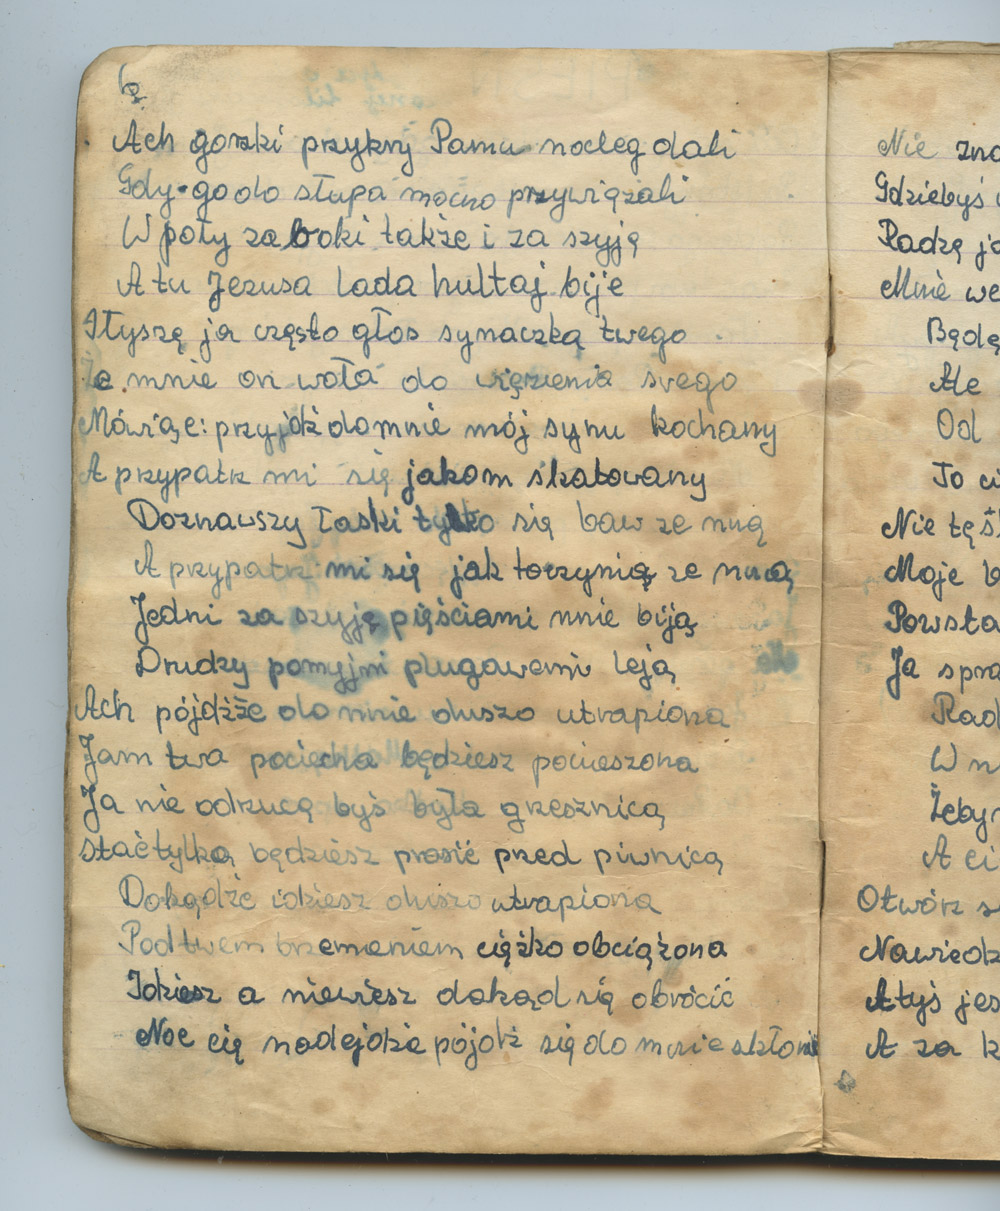 6
Ach gorzki przykry Panu nocleg dali
Gdy go do słupa mocno przywiązali
W poły za boki także i za szyję
A tu Jezusa lada hultaj bije
Słyszę ja często głos synaczka twego
Że mnie on woła do więzienia svego
Mówiąc: przyjdź do mnie mój synu kochany
A przypatrz mi się jakom skatowany
Doznawszy łaski tylko się baw ze mną
A przypatrz mi się jak to czynią ze mną
Jedni za szyję pięściami mnie biją
Drudzy pomyjmi plugawemi leją
Ach pójdźże do mnie duszo utrapiona
Jam twa pociecha będziesz pocieszona
Ja nie odrzucę byś była grzesznicą
stać tylko będziesz prosić przed piwnicą
Dokądże idziesz duszo utrapiona
Pod twem brzemieniem ciężko obciążona
Idziesz a niewiesz dokąd się obrócić
Noc cię nadejdzie pójdź się do mnie skłonić
Nie
Gdziebyś
Radzę
Mnie
Będę
Ale
Od
To
Nie
Moje
Powsta
Ja
Rad
W
Żeby
A
Otwórz
Nawiedź
Atyś
A za